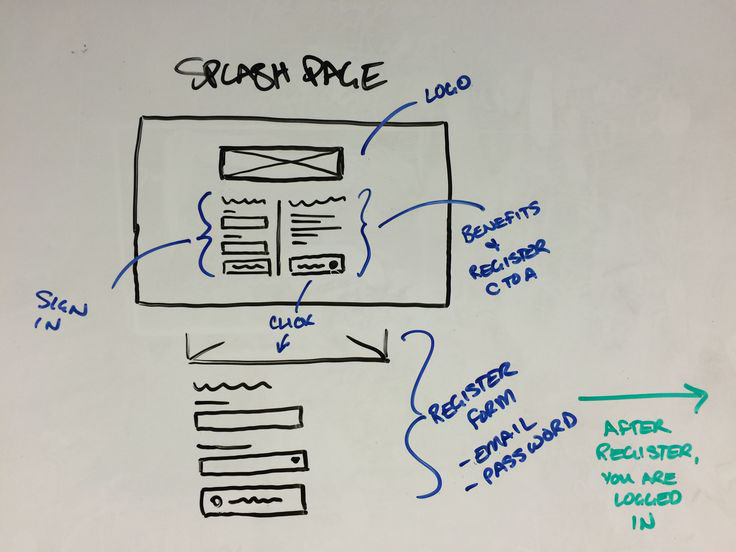 SPLASH PAGE
LOGO
BENEFITS
&
REGISTER
C TO A
SIGN
IN
CLICK
REGISTER
FORM
- EMAIL
- PASSWORD
AFTER
REGISTER,
YOU ARE
LOGGED
IN